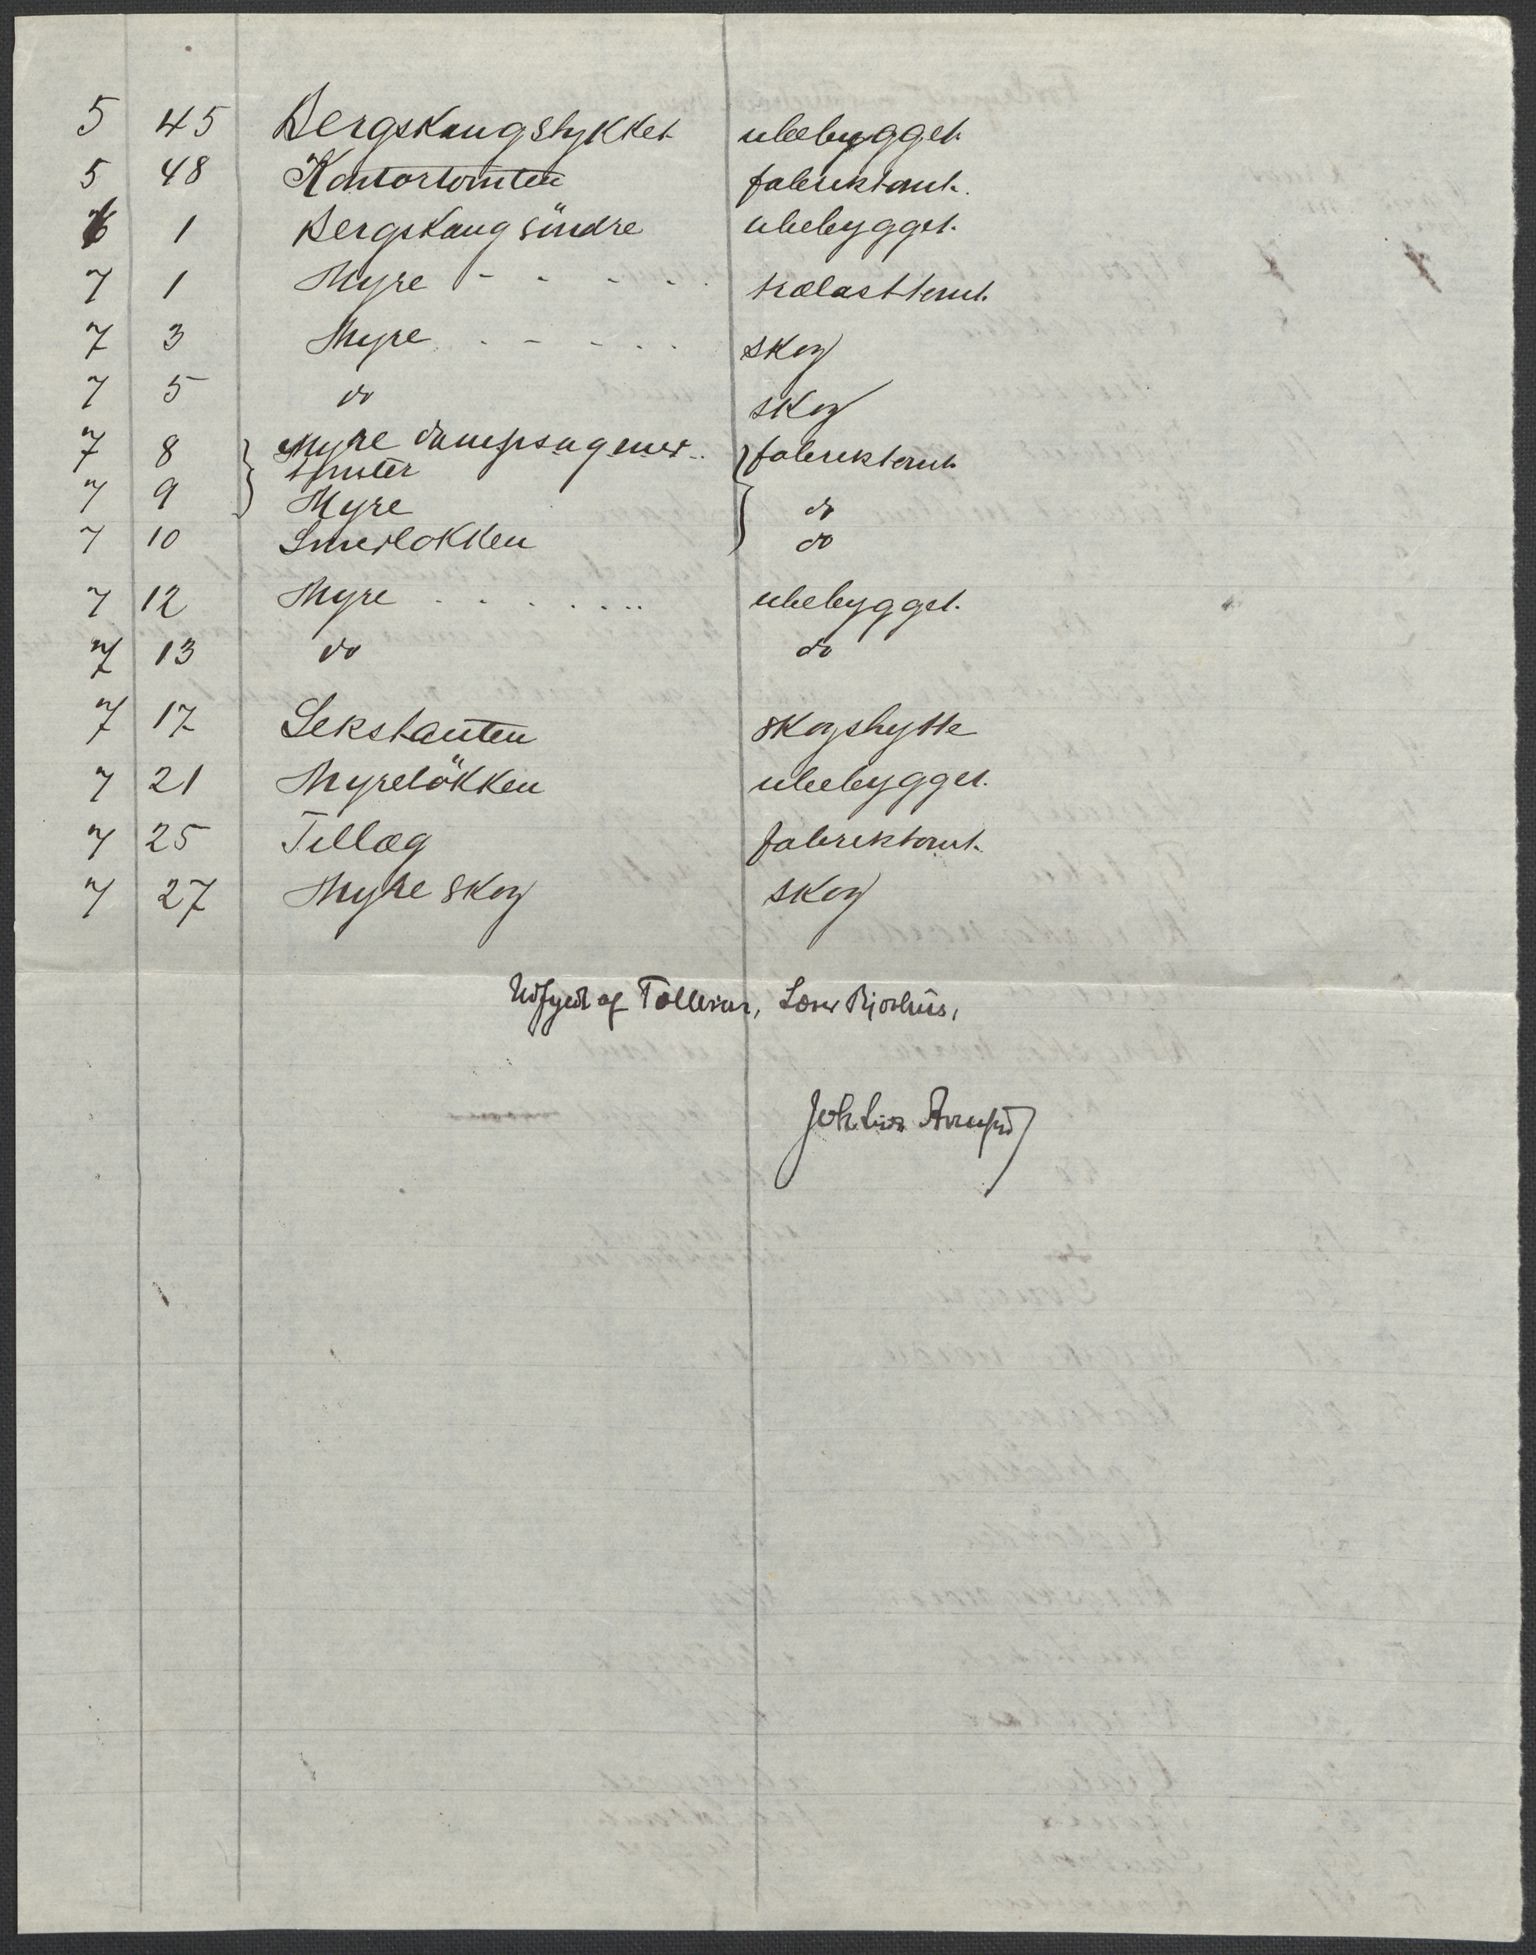 5 45 Bergskaugstykket ubebygget.
5 48 Kontortomten fabriktomt.
6 1 Bergskaug söndre ubebygget.
7 1 Myre - - - - . trælasttomt.
7 3 Myre . - - - . . skog
7 5 do skog
7 8 Myre dampsag med fabriktomt.
tomter
7 9 Myre do
7 10 Smedlökken do
7 12 Myre . - . . . .. ubebygget.
7 13 do do
7 17 Sekstanten skogshytte
7 21 Myrelökken ubebygget.
7 25 Tillæg fabriktomt.
7 27 Myre skog skog
af